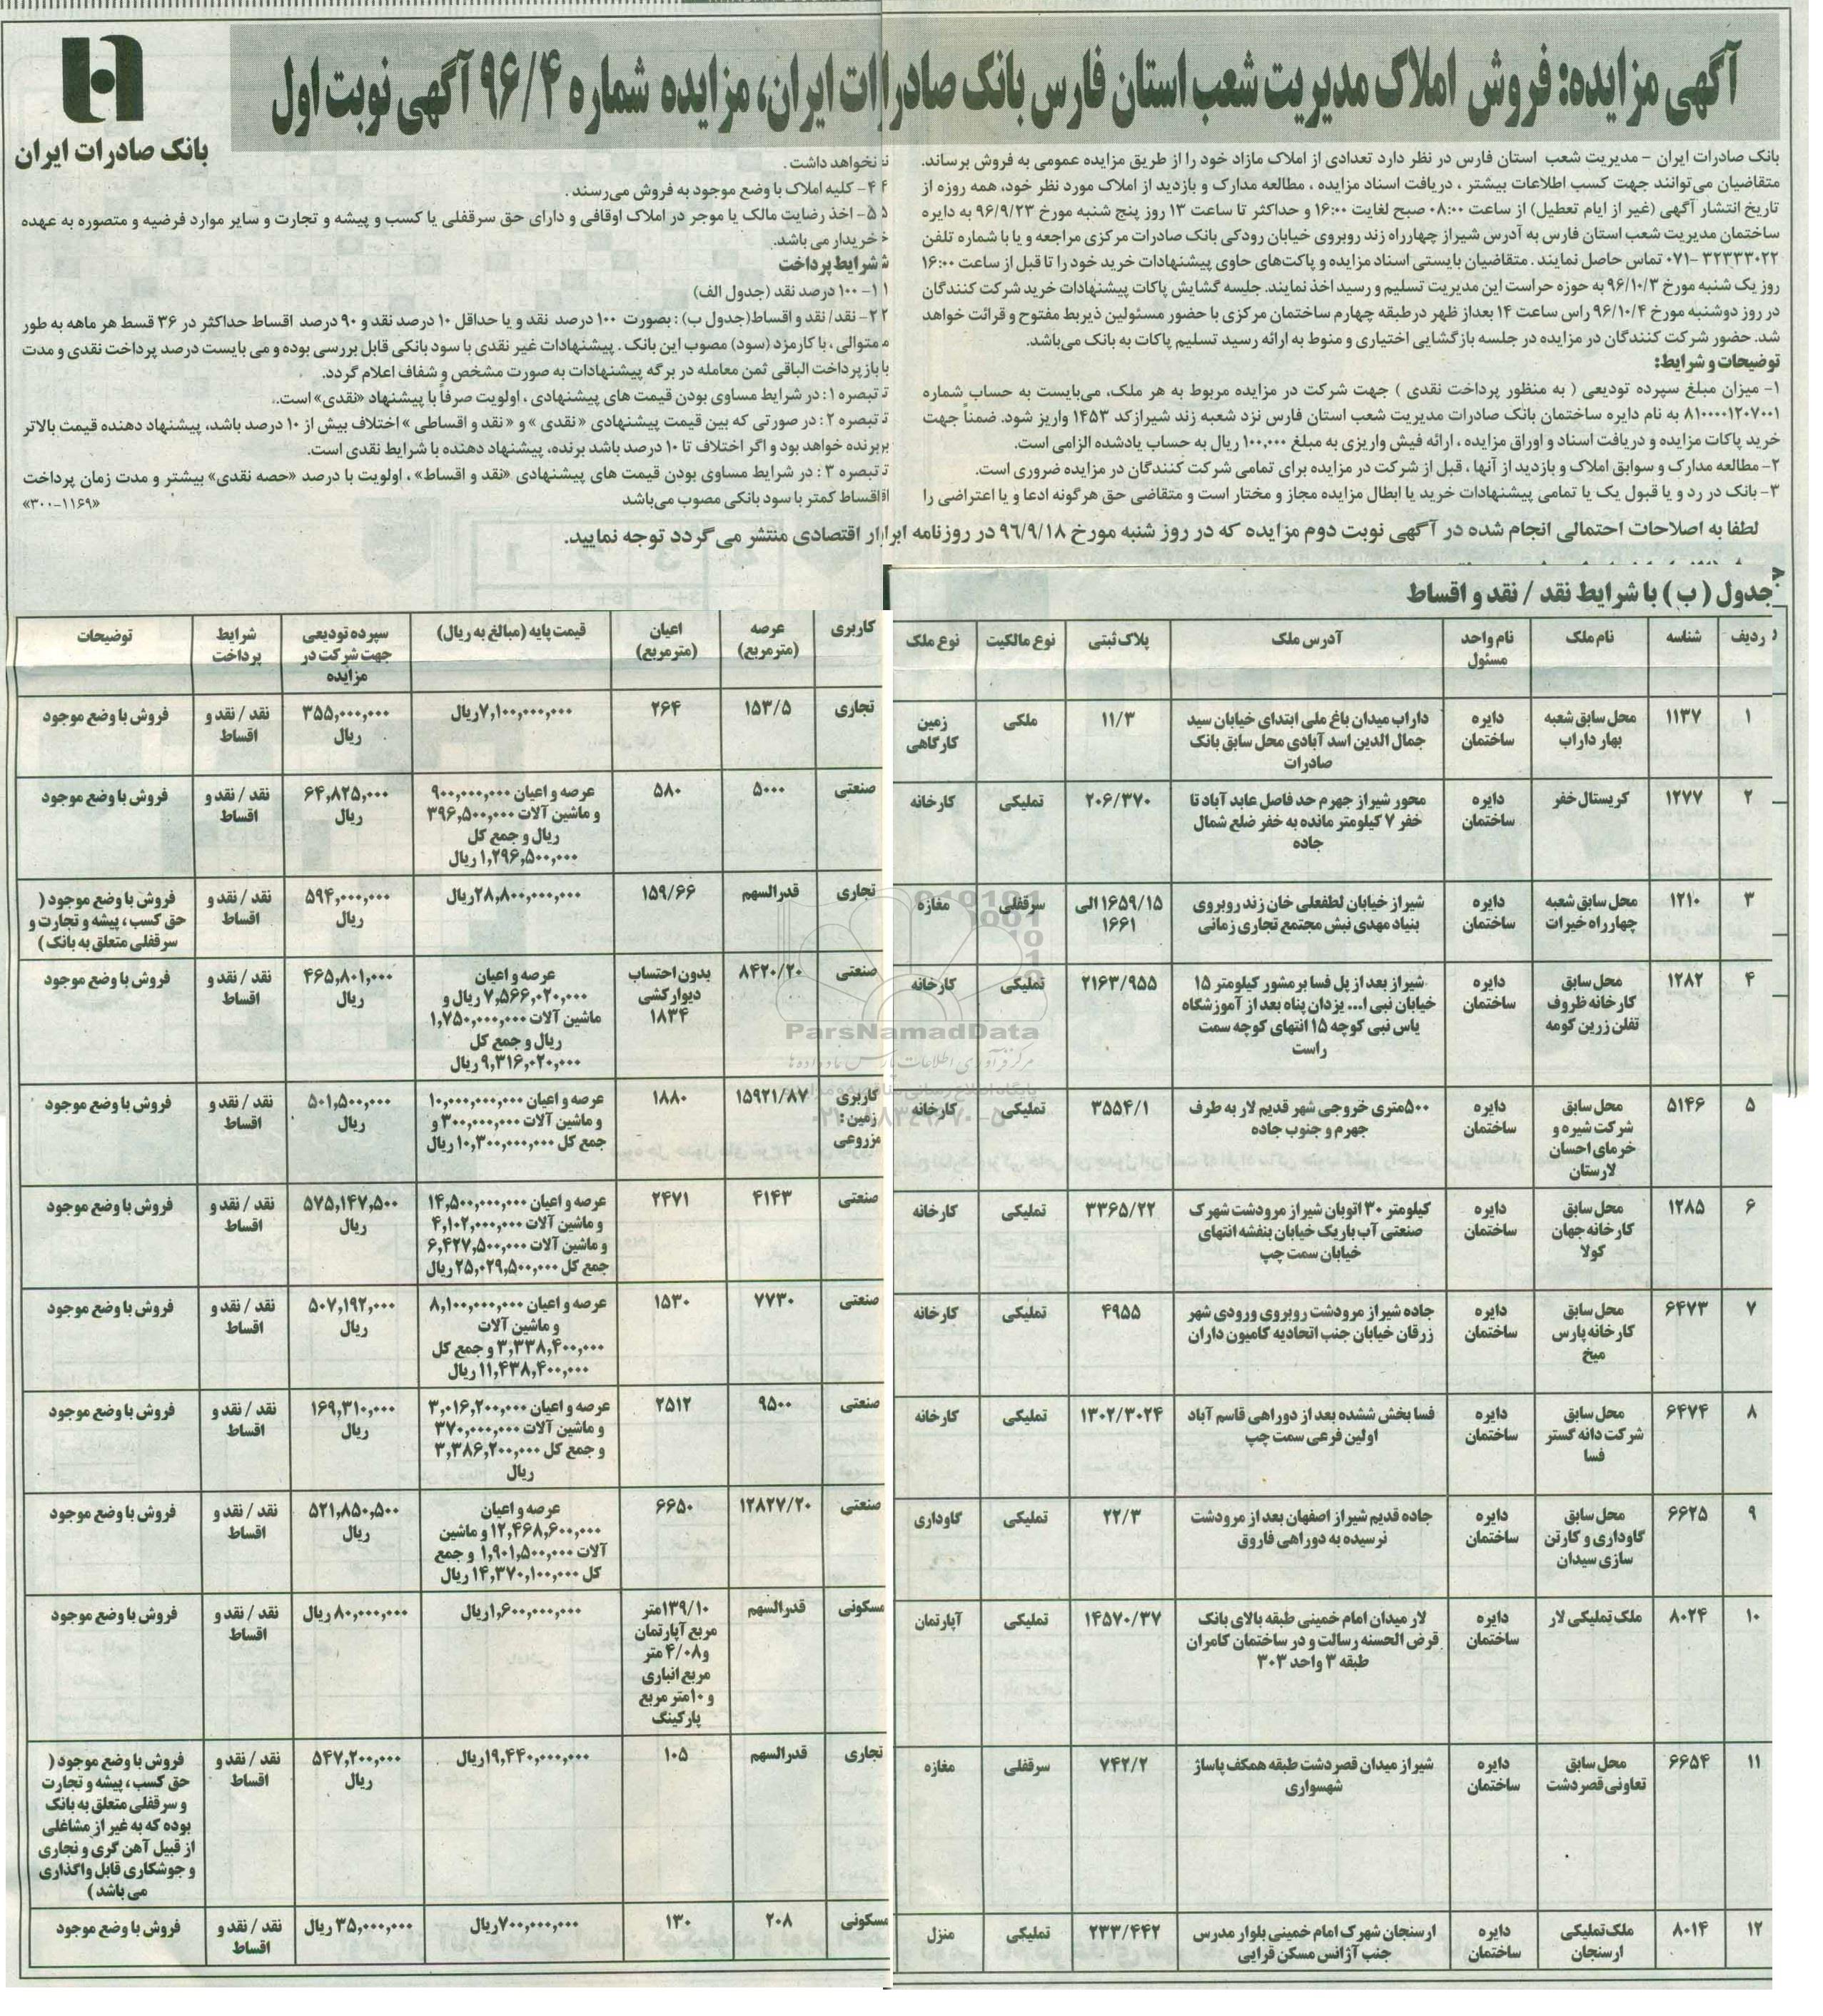 آگهی مزایده: فروش املاک مدیریت شعب استان فارس بانک صادرات ایران، مزایده شماره ۹۶/۴ آگهی نوبت اول
بانک صادرات ایران
بانک صادرات ایران – مدیریت شعب استان فارس در نظر دارد تعدادی از املاک مازاد خود را از طریق مزایده عمومی به فروش برساند.
متقاضیان می‌توانند جهت کسب اطلاعات بیشتر ، دریافت اسناد مزایده ، مطالعه مدارک و بازدید از املاک مورد نظر خود، همه روزه از
تاریخ انتشار آگهی (غیر از ایام تعطیل) از ساعت ۰۸:۰۰ صبح لغایت ۱۶:۰۰ و حداکثر تا ساعت ۱۳ روز پنج شنبه مورخ ۹۶/۹/۲۳ به دایره
ساختمان مدیریت شعب استان فارس به آدرس شیراز چهارراه زند روبروی خیابان رودکی بانک صادرات مرکزی مراجعه و یا با شماره تلفن
۳۲۳۳۳۰۲۲ -۰۷۱ تماس حاصل نمایند . متقاضیان بایستی اسناد مزایده و پاکت‌های حاوی پیشنهادات خرید خود را تا قبل از ساعت ۱۶:۰۰
روز یک شنبه مورخ ۹۶/۱۰/۳ به حوزه حراست این مدیریت تسلیم و رسید اخذ نمایند. جلسه گشایش پاکات پیشنهادات خرید شرکت کنندگان
در روز دوشنبه مورخ ۹۶/۱۰/۴ راس ساعت ۱۴ بعداز ظهر درطبقه چهارم ساختمان مرکزی با حضور مسئولین ذیربط مفتوح و قرائت خواهد
شد. حضور شرکت کنندگان در مزایده در جلسه بازگشایی اختیاری و منوط به ارائه رسید تسلیم پاکات به بانک می‌باشد.
توضیحات و شرایط:
۱- میزان مبلغ سپرده تودیعی ( به منظور پرداخت نقدی ) جهت شرکت در مزایده مربوط به هر ملک، می‌بایست به حساب شماره
۸۱۰۰۰۰۱۲۰۷۰۰۱ به نام دایره ساختمان بانک صادرات مدیریت شعب استان فارس نزد شعبه زند شیرازکد ۱۴۵۳ واریز شود. ضمناً جهت
خرید پاکات مزایده و دریافت اسناد و اوراق مزایده ، ارائه فیش واریزی به مبلغ ۱۰۰,۰۰۰ ریال به حساب یادشده الزامی است.
۲- مطالعه مدارک و سوابق املاک و بازدید از آنها ، قبل از شرکت در مزایده برای تمامی شرکت کنندگان در مزایده ضروری است.
۳- بانک در رد و یا قبول یک یا تمامی پیشنهادات خرید یا ابطال مزایده مجاز و مختار است و متقاضی حق هرگونه ادعا و یا اعتراضی را
نخواهد داشت .
۴- کلیه املاک با وضع موجود به فروش می‌رسند .
۵- اخذ رضایت مالک یا موجر در املاک اوقافی و دارای حق سرقفلی یا کسب و پیشه و تجارت و سایر موارد فرضیه و متصوره به عهده
خریدار می باشد.
شرایط پرداخت
۱- ۱۰۰ درصد نقد (جدول الف)
۲- نقد/ نقد و اقساط(جدول ب) : بصورت ۱۰۰ درصد نقد و یا حداقل ۱۰ درصد نقد و ۹۰ درصد اقساط حداکثر در ۳۶ قسط هر ماهه به طور
متوالی ، با کارمزد (سود) مصوب این بانک . پیشنهادات غیر نقدی با سود بانکی قابل بررسی بوده و می بایست درصد پرداخت نقدی و مدت
بازپرداخت الباقی ثمن معامله در برگه پیشنهادات به صورت مشخص و شفاف اعلام گردد.
تبصره ۱: در شرایط مساوی بودن قیمت های پیشنهادی ، اولویت صرفاً با پیشنهاد «نقدی» است.
تبصره ۲: در صورتی که بین قیمت پیشنهادی « نقدی » و « نقد و اقساطی » اختلاف بیش از ۱۰ درصد باشد، پیشنهاد دهنده قیمت بالاتر
برنده خواهد بود و اگر اختلاف تا ۱۰ درصد باشد برنده، پیشنهاد دهنده با شرایط نقدی است.
تبصره ۳: در شرایط مساوی بودن قیمت های پیشنهادی «نقد و اقساط» ، اولویت با درصد «حصه نقدی» بیشتر و مدت زمان پرداخت
اقساط کمتر با سود بانکی مصوب می‌باشد
«۳۰۰-۱۱۶۹»
لطفا به اصلاحات احتمالی انجام شده در آگهی نوبت دوم مزایده که در روز شنبه مورخ ۹۶/۹/۱۸ در روزنامه ابرار اقتصادی منتشر می گردد توجه نمایید.
جدول ( ب ) با شرایط نقد / نقد و اقساط
ردیف | شناسه | نام ملک | نام واحد مسئول | آدرس ملک | پلاک ثبتی | نوع مالکیت | نوع ملک | کاربری | عرصه (مترمربع) | اعیان (مترمربع) | قیمت پایه (مبالغ به ریال) | سپرده تودیعی جهت شرکت در مزایده | شرایط پرداخت | توضیحات
۱ | ۱۱۳۷ | محل سابق شعبه بهار داراب | دایره ساختمان | داراب میدان باغ ملی ابتدای خیابان سید جمال الدین اسد آبادی محل سابق بانک صادرات | ۱۱/۳ | ملکی | زمین کارگاهی | تجاری | ۱۵۳/۵ | ۲۶۴ | ۷,۱۰۰,۰۰۰,۰۰۰ریال | ۳۵۵,۰۰۰,۰۰۰ ریال | نقد / نقد و اقساط | فروش با وضع موجود
۲ | ۱۲۷۷ | کریستال خفر | دایره ساختمان | محور شیراز جهرم حد فاصل عابد آباد تا خفر ۷ کیلومتر مانده به خفر ضلع شمال جاده | ۲۰۶/۳۷۰ | تملیکی | کارخانه | صنعتی | ۵۰۰۰ | ۵۸۰ | عرصه و اعیان ۹۰۰,۰۰۰,۰۰۰ و ماشین آلات ۳۹۶,۵۰۰,۰۰۰ ریال و جمع کل ۱,۲۹۶,۵۰۰,۰۰۰ ریال | ۶۴,۸۲۵,۰۰۰ ریال | نقد / نقد و اقساط | فروش با وضع موجود
۳ | ۱۲۱۰ | محل سابق شعبه چهارراه خیرات | دایره ساختمان | شیراز خیابان لطفعلی خان زند روبروی بنیاد مهدی نبش مجتمع تجاری زمانی | ۱۶۵۹/۱۵ الی ۱۶۶۱ | سرقفلی | مغازه | تجاری | قدرالسهم | ۱۵۹/۶۶ | ۲۸,۸۰۰,۰۰۰,۰۰۰ریال | ۵۹۴,۰۰۰,۰۰۰ ریال | نقد / نقد و اقساط | فروش با وضع موجود ( حق کسب ، پیشه و تجارت و سرقفلی متعلق به بانک )
۴ | ۱۲۸۲ | محل سابق کارخانه ظروف تفلن زرین کومه | دایره ساختمان | شیراز بعد از پل فسا برمشور کیلومتر ۱۵ خیابان نبی ا... یزدان پناه بعد از آموزشگاه یاس نبی کوچه ۱۵ انتهای کوچه سمت راست | ۲۱۶۳/۹۵۵ | تملیکی | کارخانه | صنعتی | ۸۴۲۰/۲۰ | بدون احتساب دیوارکشی ۱۸۳۴ | عرصه و اعیان ۷,۵۶۶,۰۲۰,۰۰۰ ریال و ماشین آلات ۱,۷۵۰,۰۰۰,۰۰۰ ریال و جمع کل ۹,۳۱۶,۰۲۰,۰۰۰ ریال | ۴۶۵,۸۰۱,۰۰۰ ریال | نقد / نقد و اقساط | فروش با وضع موجود
۵ | ۵۱۴۶ | محل سابق شرکت شیره و خرمای احسان لارستان | دایره ساختمان | ۵۰۰متری خروجی شهر قدیم لار به طرف جهرم و جنوب جاده | ۳۵۵۴/۱ | تملیکی | کارخانه | کاربری زمین : مزروعی | ۱۵۹۲۱/۸۷ | ۱۸۸۰ | عرصه و اعیان ۱۰,۰۰۰,۰۰۰,۰۰۰ و ماشین آلات ۳۰۰,۰۰۰,۰۰۰ و جمع کل ۱۰,۳۰۰,۰۰۰,۰۰۰ ریال | ۵۰۱,۵۰۰,۰۰۰ ریال | نقد / نقد و اقساط | فروش با وضع موجود
۶ | ۱۲۸۵ | محل سابق کارخانه جهان کولا | دایره ساختمان | کیلومتر ۳۰ اتوبان شیراز مرودشت شهرک صنعتی آب باریک خیابان بنفشه انتهای خیابان سمت چپ | ۳۳۶۵/۲۲ | تملیکی | کارخانه | صنعتی | ۴۱۴۳ | ۲۴۷۱ | عرصه و اعیان ۱۴,۵۰۰,۰۰۰,۰۰۰ و ماشین آلات ۴,۱۰۲,۰۰۰,۰۰۰ و ماشین آلات ۶,۴۲۷,۵۰۰,۰۰۰ جمع کل ۲۵,۰۲۹,۵۰۰,۰۰۰ ریال | ۵۷۵,۱۴۷,۵۰۰ ریال | نقد / نقد و اقساط | فروش با وضع موجود
۷ | ۶۴۷۳ | محل سابق کارخانه پارس میخ | دایره ساختمان | جاده شیراز مرودشت روبروی ورودی شهر زرقان خیابان جنب اتحادیه کامیون داران | ۴۹۵۵ | تملیکی | کارخانه | صنعتی | ۷۷۳۰ | ۱۵۳۰ | عرصه و اعیان ۸,۱۰۰,۰۰۰,۰۰۰ و ماشین آلات ۳,۳۳۸,۴۰۰,۰۰۰ و جمع کل ۱۱,۴۳۸,۴۰۰,۰۰۰ ریال | ۵۰۷,۱۹۲,۰۰۰ ریال | نقد / نقد و اقساط | فروش با وضع موجود
۸ | ۶۴۷۴ | محل سابق شرکت دانه گستر فسا | دایره ساختمان | فسا بخش ششده بعد از دوراهی قاسم آباد اولین فرعی سمت چپ | ۱۳۰۲/۳۰۲۴ | تملیکی | کارخانه | صنعتی | ۹۵۰۰ | ۲۵۱۲ | عرصه و اعیان ۳,۰۱۶,۲۰۰,۰۰۰ و ماشین آلات ۳۷۰,۰۰۰,۰۰۰ و جمع کل ۳,۳۸۶,۲۰۰,۰۰۰ ریال | ۱۶۹,۳۱۰,۰۰۰ ریال | نقد / نقد و اقساط | فروش با وضع موجود
۹ | ۶۶۲۵ | محل سابق گاوداری و کارتن سازی سیدان | دایره ساختمان | جاده قدیم شیراز اصفهان بعد از مرودشت نرسیده به دوراهی فاروق | ۲۲/۳ | تملیکی | گاوداری | صنعتی | ۱۲۸۲۷/۲۰ | ۶۶۵۰ | عرصه و اعیان ۱۲,۴۶۸,۶۰۰,۰۰۰ و ماشین آلات ۱,۹۰۱,۵۰۰,۰۰۰ و جمع کل ۱۴,۳۷۰,۱۰۰,۰۰۰ ریال | ۵۲۱,۸۵۰,۵۰۰ ریال | نقد / نقد و اقساط | فروش با وضع موجود
۱۰ | ۸۰۲۴ | ملک تملیکی لار | دایره ساختمان | لار میدان امام خمینی طبقه بالای بانک قرض الحسنه رسالت و در ساختمان کامران طبقه ۳ واحد ۳۰۳ | ۱۴۵۷۰/۳۷ | تملیکی | آپارتمان | مسکونی | قدرالسهم | ۱۳۹/۱۰متر مربع آپارتمان و ۴/۰۸ متر مربع انباری و ۱۰متر مربع پارکینگ | ۱,۶۰۰,۰۰۰,۰۰۰ریال | ۸۰,۰۰۰,۰۰۰ ریال | نقد / نقد و اقساط | فروش با وضع موجود
۱۱ | ۶۶۵۴ | محل سابق تعاونی قصردشت | دایره ساختمان | شیراز میدان قصردشت طبقه همکف پاساژ شهسواری | ۷۴۲/۲ | سرقفلی | مغازه | تجاری | قدرالسهم | ۱۰۵ | ۱۹,۴۴۰,۰۰۰,۰۰۰ریال | ۵۴۷,۲۰۰,۰۰۰ ریال | نقد / نقد و اقساط | فروش با وضع موجود ( حق کسب ، پیشه و تجارت و سرقفلی متعلق به بانک بوده که به غیر از مشاغلی از قبیل آهن گری و نجاری و جوشکاری قابل واگذاری می باشد )
۱۲ | ۸۰۱۴ | ملک تملیکی ارسنجان | دایره ساختمان | ارسنجان شهرک امام خمینی بلوار مدرس جنب آژانس مسکن قرایی | ۲۳۳/۴۴۲ | تملیکی | منزل | مسکونی | ۲۰۸ | ۱۳۰ | ۷۰۰,۰۰۰,۰۰۰ریال | ۳۵,۰۰۰,۰۰۰ ریال | نقد / نقد و اقساط | فروش با وضع موجود
ParsNamadData